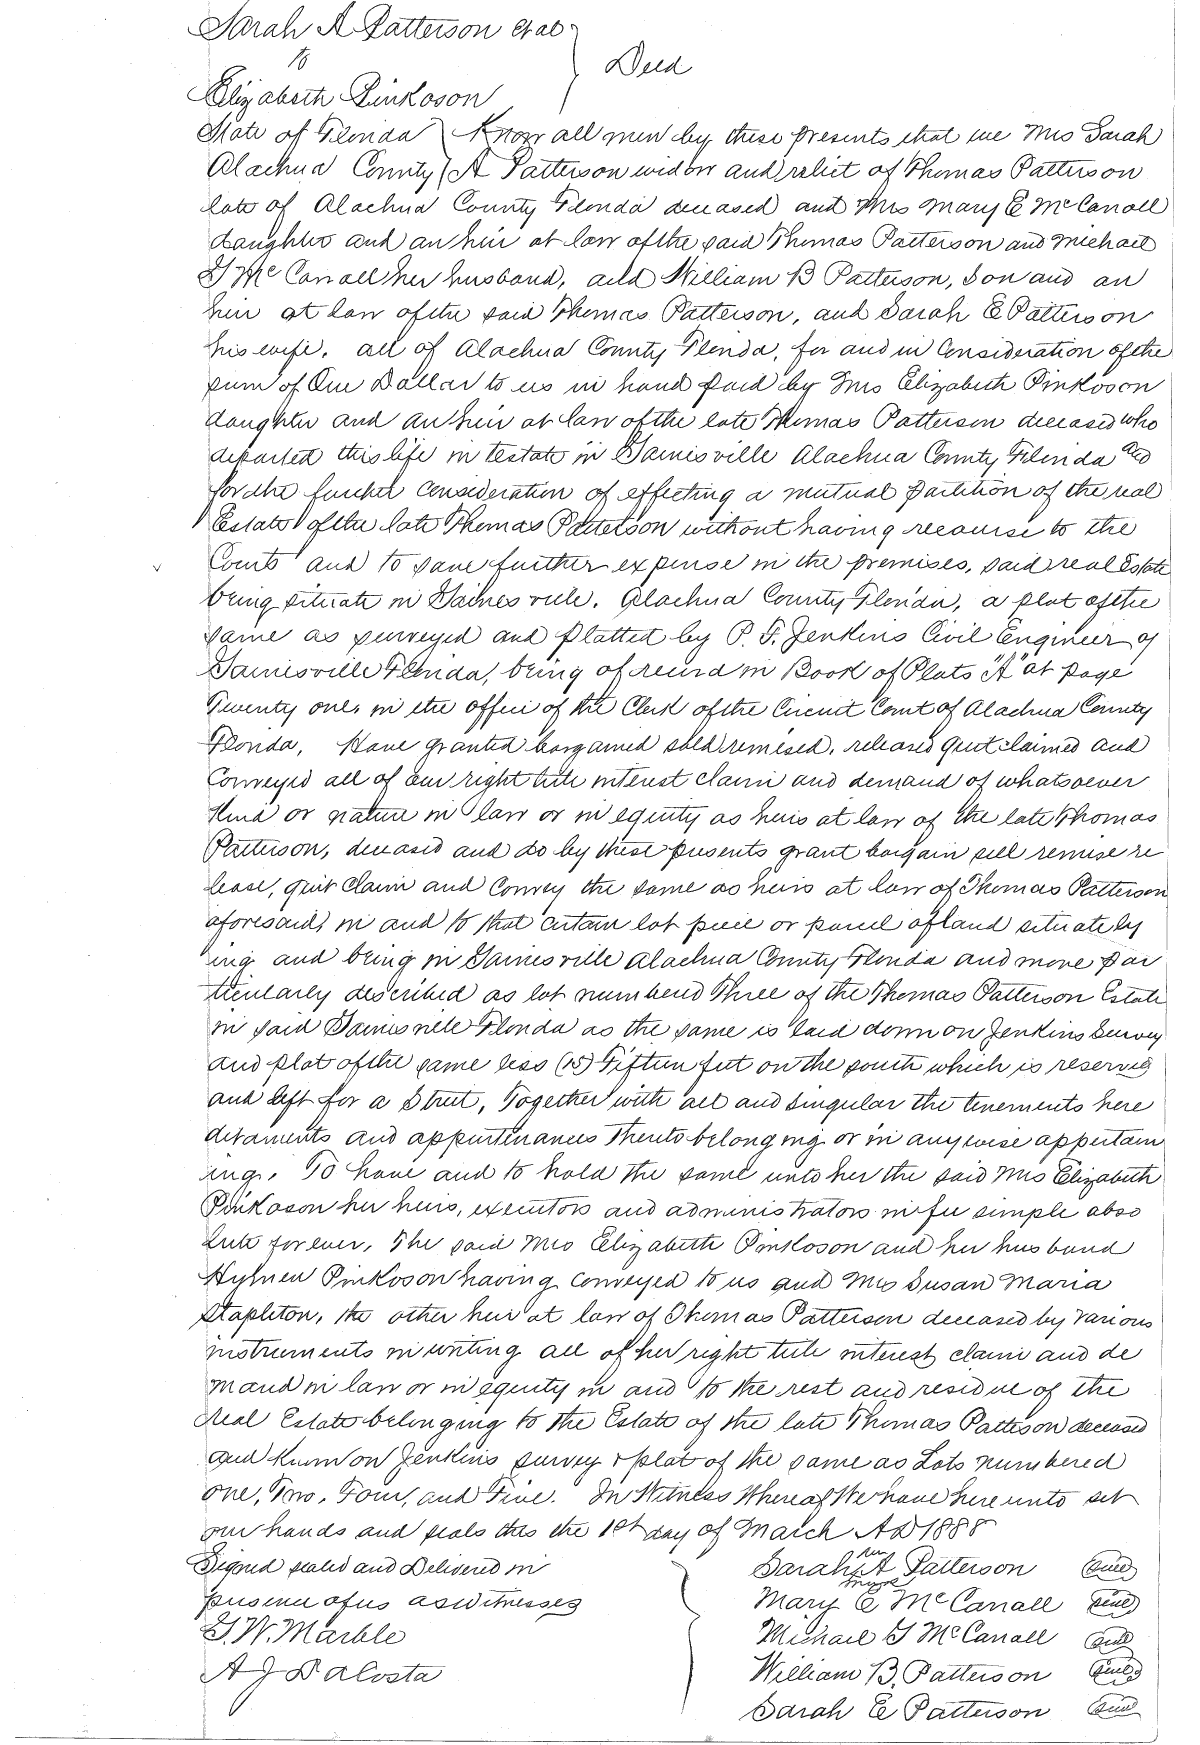 Sarah A Patterson et al
to
Deed
Elizabeth Pinkoson
State of Florida Know all men by these presents that we Mrs Sarah
Alachua County A Patterson widow and relict of Thomas Patterson
late of Alachua County Florida deceased and Mrs Mary E McCanall
daughter and an heir at law of the said Thomas Patterson and Michael
G McCanall her husband, and William B Patterson, Son and an
heir at law of the said Thomas Patterson, and Sarah E Patterson
his wife, all of Alachua County Florida, for and in Consideration of the
sum of One Dollar to us in hand paid by Mrs Elizabeth Pinkoson
daughter and an heir at law of the late Thomas Patterson deceased who
departed this life intestate in Gainesville Alachua County Florida and
for the further Consideration of effecting a mutual partition of the real
Estate of the late Thomas Patterson without having recourse to the
Courts and to save further expense in the premises, said real Estate
being situate in Gainesville, Alachua County Florida, a plat of the
same as surveyed and platted by P. F. Jenkins Civil Engineer of
Gainesville Florida, being of record in Book of Plats "A" at page
Twenty one, in the office of the Clerk of the Circuit Court of Alachua County
Florida, Have granted bargained sold remised, released quit claimed and
Conveyed all of our right title interest claim and demand of whatsoever
Kind or nature in law or in equity as heirs at law of the late Thomas
Patterson, deceased and do by these presents grant bargain sell remise re
lease, quit claim and Convey the same as heirs at law of Thomas Patterson
aforesaid, in and to that certain lot piece or parcel of land situate ly
ing and being in Gainesville Alachua County Florida and more par
ticularly described as lot numbered Three of the Thomas Patterson Estate
in said Gainesville Florida as the same is laid down on Jenkins Survey
and plat of the same less (15) Fifteen feet on the south which is reserved
and left for a Street, Together with all and singular the tenements here
ditaments and appurtenances thereto belonging or in anywise appertain
ing. To have and to hold the same unto her the said Mrs Elizabeth
Pinkoson her heirs, executors and administrators in fee simple abso
lute forever, The said Mrs Elizabeth Pinkoson and her husband
Hymen Pinkoson having conveyed to us and Mrs Susan Maria
Stapleton, the other heir at law of Thomas Patterson deceased by various
instruments in writing all of her right title interest claim and de
mand in law or in equity in and to the rest and residue of the
real Estate belonging to the Estate of the late Thomas Patterson deceased
and known on Jenkins survey & plat of the same as Lots numbered
one, Two, Four, and Five. In Witness Whereof We have hereunto set
our hands and seals this the 1st day of March AD 1888
Signed sealed and Delivered in
presence of us as witnesses
G. W. Marble
A J DaCosta
her
Sarah A Patterson seal
mark
Mary E McCanall seal
Michael G McCanall seal
William B. Patterson seal
Sarah E Patterson seal